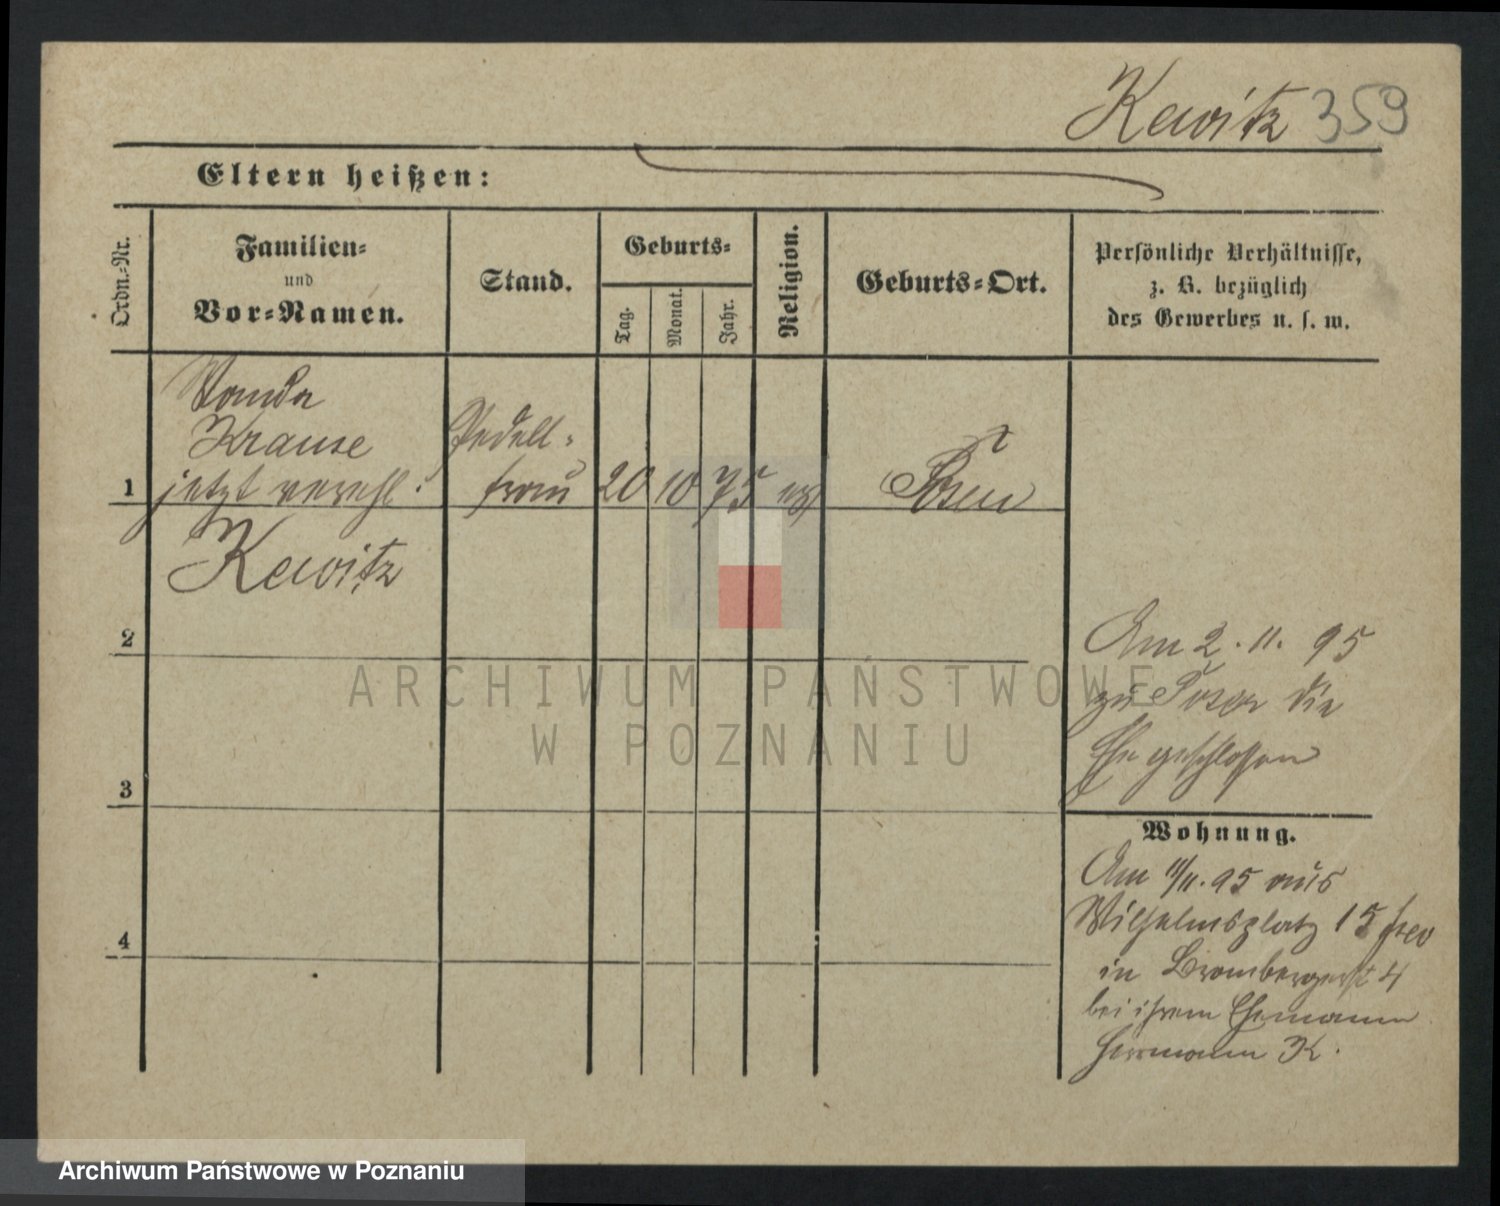 Kewitz 359
Eltern heißen:
Ordn.-Nr.
Familien-
und
Vor-Namen.
Stand.
Geburts-
Tag.
Monat.
Jahr.
Religion.
Geburts-Ort.
Persönliche Verhältnisse,
z. B. bezüglich
des Gewerbes u. s. w.
Wanda
Krause
1 jetzt verehl.
Kewitz
Pedell-
frau
20 10 75
Posen
2
3
4
Am 2. 11. 95
zu Posen die
Ehe geschlossen
Wohnung.
Am 11/11. 95 aus
Wilhelmsplatz 15
in Brombergerst 4
bei ihrem Ehemann
Hermann K.
ARCHIWUM PAŃSTWOWE
W POZNANIU
Archiwum Państwowe w Poznaniu